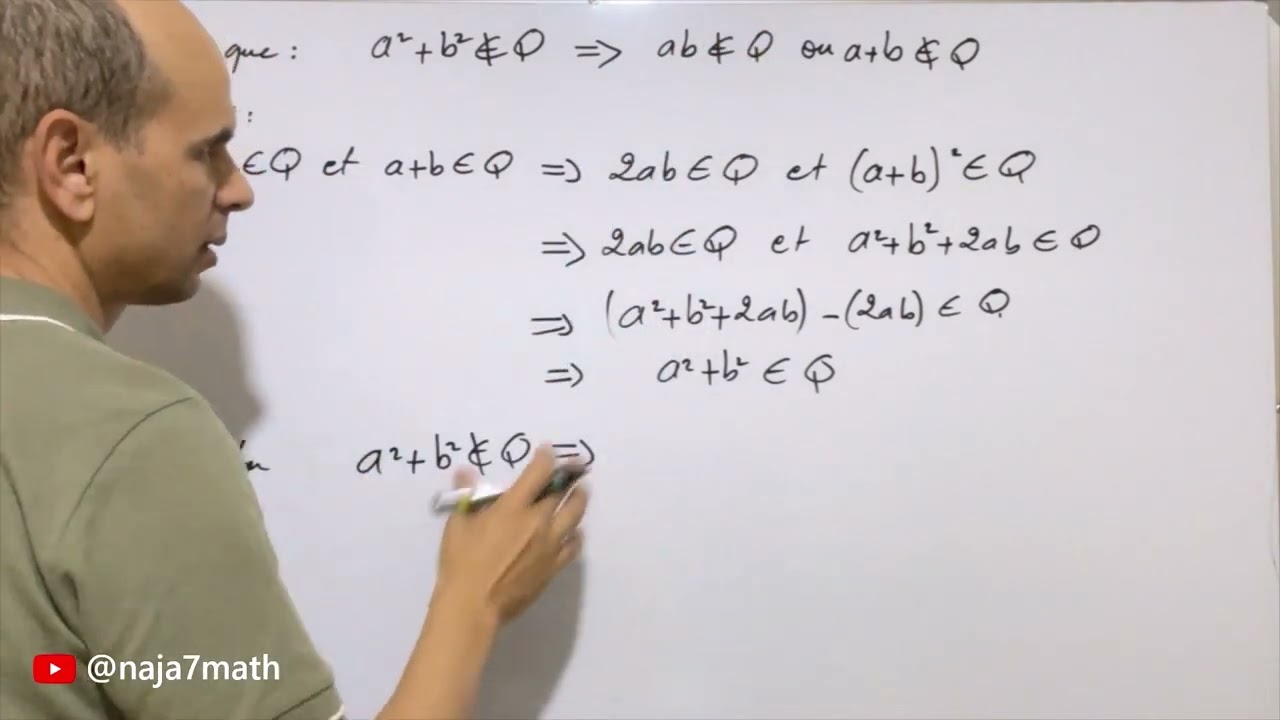 que : a²+b² ∉ Q => ab ∉ Q ou a+b ∉ Q
:
∈ Q et a+b ∈ Q => 2ab ∈ Q et (a+b)² ∈ Q
=> 2ab ∈ Q et a²+b²+2ab ∈ Q
=> (a²+b²+2ab) - (2ab) ∈ Q
=> a²+b² ∈ Q
a²+b² ∉ Q =>
@naja7math